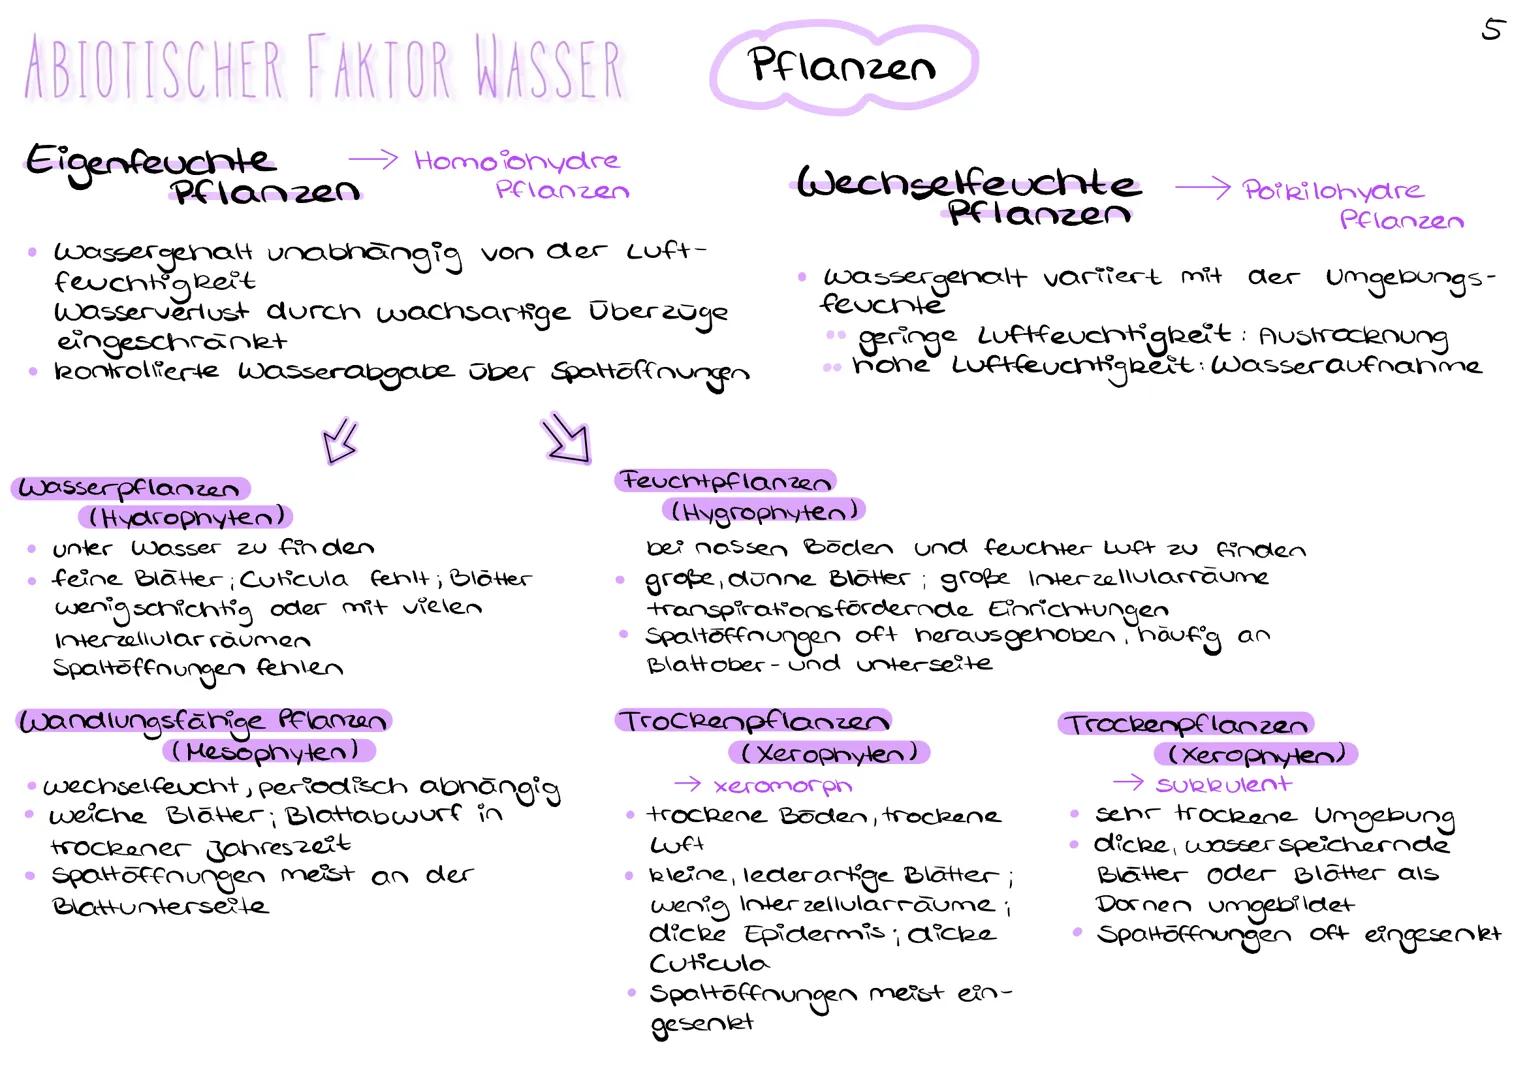 ABIOTISCHER FAKTOR WASSER
Pflanzen
5
Eigenfeuchte
Pflanzen
→ Homoiohydre
Pflanzen
• Wassergehalt unabhängig von der Luft-
feuchtigkeit
Wasserverlust durch wachsartige Überzüge
eingeschränkt
• kontrollierte Wasserabgabe über Spaltöffnungen
Wechselfeuchte
Pflanzen
→ Poikilohydre
Pflanzen
• Wassergehalt variiert mit der Umgebungs-
feuchte
•• geringe Luftfeuchtigkeit: Austrocknung
•• hohe Luftfeuchtigkeit: Wasseraufnahme
Wasserpflanzen
(Hydrophyten)
• unter Wasser zu finden
• feine Blätter; Cuticula fehlt; Blätter
wenigschichtig oder mit vielen
Interzellularräumen
Spaltöffnungen fehlen
Feuchtpflanzen
(Hygrophyten)
bei nassen Böden und feuchter Luft zu finden
• große, dünne Blätter; große Interzellularräume
transpirationsfördernde Einrichtungen
• Spaltöffnungen oft herausgehoben, häufig an
Blattober- und unterseite
Wandlungsfähige Pflanzen
(Mesophyten)
• wechselfeucht, periodisch abhängig
• weiche Blätter; Blattabwurf in
trockener Jahreszeit
• Spaltöffnungen meist an der
Blattunterseite
Trockenpflanzen
(Xerophyten)
→ xeromorph
• trockene Böden, trockene
Luft
• kleine, lederartige Blätter;
wenig Interzellularräume;
dicke Epidermis; dicke
Cuticula
• Spaltöffnungen meist ein-
gesenkt
Trockenpflanzen
(Xerophyten)
→ sukkulent
• sehr trockene Umgebung
• dicke, wasserspeichernde
Blätter oder Blätter als
Dornen umgebildet
• Spaltöffnungen oft eingesenkt